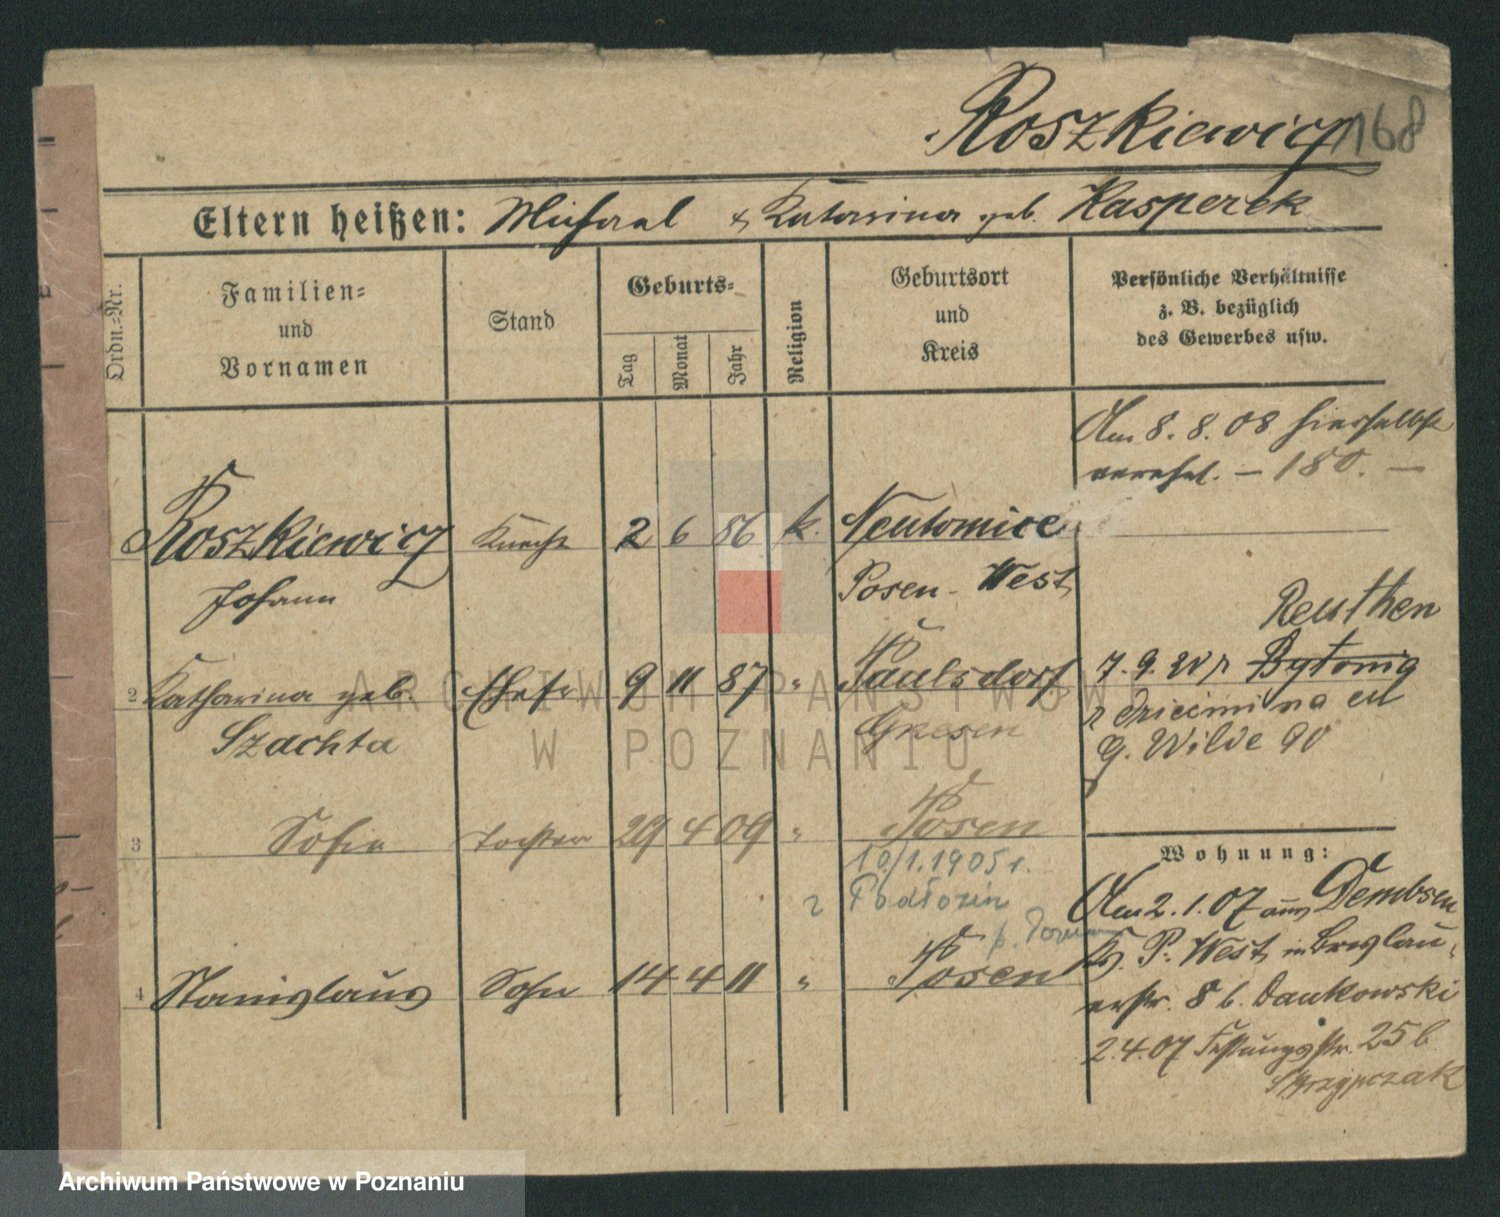 Roszkiewicz 168
Eltern heißen: Michael & Katarina geb. Kasperek
Ordn.=Nr.
Familien=
und
Vornamen
Stand
Geburts=
Tag
Monat
Jahr
Religion
Geburtsort
und
Kreis
Persönliche Verhältnisse
z. B. bezüglich
des Gewerbes usw.
Am 8. 8. 08 hierselbst
verehel. – 180. –
Roszkiewicz Knecht 2 6 86 k. Neutomice
Johann Posen - West
2 Katharina geb. Ehefr 9 11 87 " Paulsdorf
Szachta Gnesen
Reuthen
7. 9. 20 r Bytomia
G. Wilde 90
3 Sofie Tochter 29 4 09 " Posen
10/1.1905 r.
z Podłozin
4 Stanislaus Sohn 14 4 11 " Posen
Wohnung:
Am 2. 1. 07 aus Dembsen
Kr. P. West in Breslau-
erstr. 8 b. Dankowski
2.4.07 Festungsstr. 25 b.
Skrzypczak
ARCHIWUM PAŃSTWOWE
W POZNANIU
Archiwum Państwowe w Poznaniu